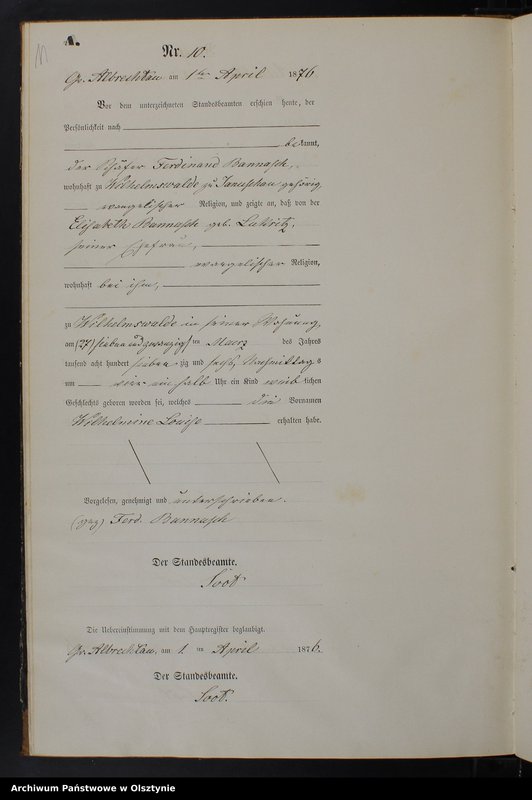 A.
Nr. 10.
Gr. Albrechtau am 1ten April 1876
Vor dem unterzeichneten Standesbeamten erschien heute, der
Persönlichkeit nach
bekannt,
der Schäfer Ferdinand Bannasch,
wohnhaft zu Wilhelmswalde zu Januschau gehörig
evangelischer Religion, und zeigte an, daß von der
Elisabeth Bannasch geb.
seiner Ehefrau,
evangelischer Religion,
wohnhaft bei ihm,
zu Wilhelmswalde in seiner Wohnung
am (27) siebenundzwanzigsten Maerz des Jahres
tausend acht hundert siebenzig und sechs, Nachmittags
um vier ein halb Uhr ein Kind weiblichen
Geschlechts geboren worden sei, welches die Vornamen
Wilhelmine Louise erhalten habe.
Vorgelesen, genehmigt und unterschrieben.
(gez) Ferd. Bannasch
Der Standesbeamte.
Die Uebereinstimmung mit dem Hauptregister beglaubigt.
Gr. Albrechtau, am 1. ten April 1876.
Der Standesbeamte.
Archiwum Państwowe w Olsztynie